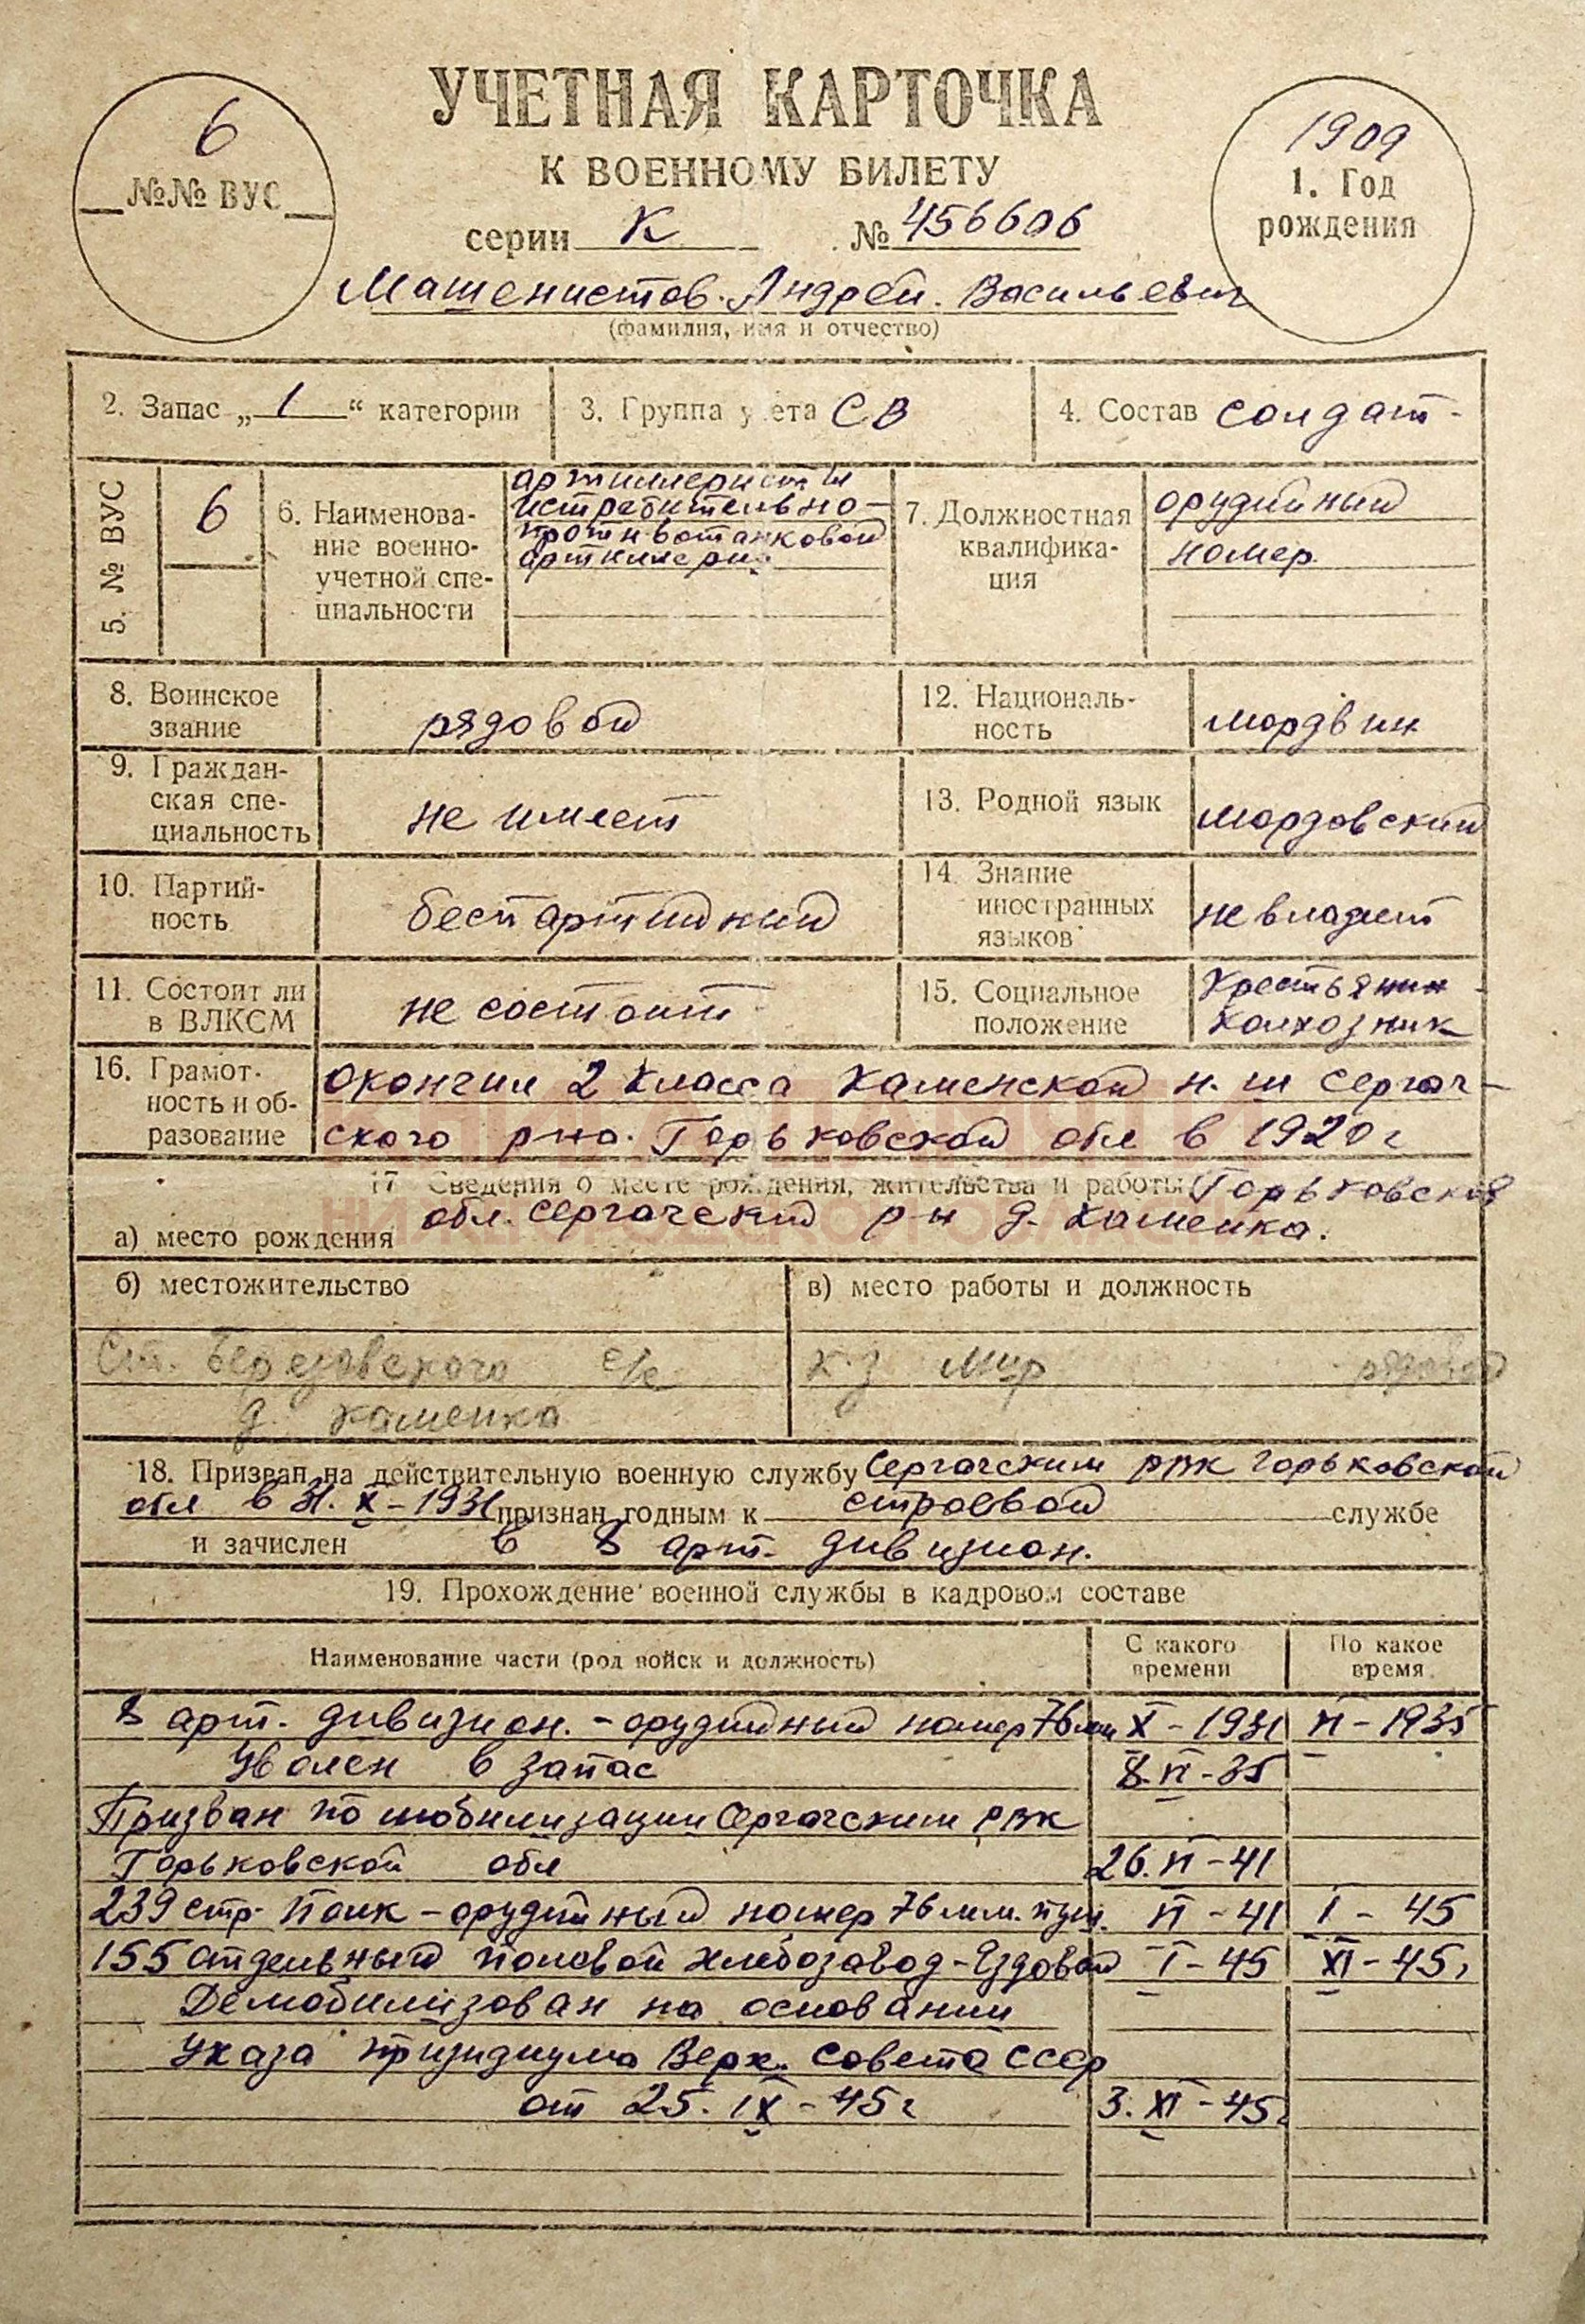 УЧЕТНАЯ КАРТОЧКА
К ВОЕННОМУ БИЛЕТУ
6
№№ ВУС
1909
1. Год
рождения
серии К № 456606
Машенистов. Андрей. Васильевич
(фамилия, имя и отчество)
2. Запас „1“ категории
3. Группа учета СВ
4. Состав солдат-
5. № ВУС
6
6. Наименова-
ние военно-
учетной спе-
циальности
артиллеристы
истребительно-
противотанковой
артилерии
7. Должностная
квалифика-
ция
орудийный
номер.
8. Воинское
звание
рядовой
12. Националь-
ность
мордвин
9. Граждан-
ская спе-
циальность
не имеет
13. Родной язык
мордовский
10. Партий-
ность
беспартийный
14. Знание
иностранных
языков
не владеет
11. Состоит ли
в ВЛКСМ
не состоит
15. Социальное
положение
Крестьянин
колхозник
16. Грамот-
ность и об-
разование
окончил 2 класса Каменской н. ш Сергач-
ского рна. Горьковской обл в 1920 г
17 Сведения о месте рождения, жительства и работы Горьковская
обл. Сергачский р н д. Каменка.
а) место рождения
НИЖЕГОРОДСКОЙ ОБЛАСТИ
б) местожительство
в) место работы и должность
Ст. Березовского с/с
д. Каменка
к-з Мир рядовой
18. Призван на действительную военную службу Сергачским РВК Горьковской
обл в 31. X-1931 признан годным к строевой службе
и зачислен в 8 арт. дивизион.
19. Прохождение военной службы в кадровом составе
Наименование части (род войск и должность)
С какого
времени
По какое
время
8 арт. дивизион. - орудийный номер 76 мм X-1931 II-1935
Уволен в запас 8.II-35
Призван по мобилизации Сергачским РВК
Горьковской обл 26.VI-41
239 стр. полк - орудийный номер 76 м.м. пуш. VI-41 I-45
155 отдельный полевой хлебозавод - Ездовой I-45 XI-45г
Демобилизован на основании
Указа призидиума Верх. Совета СССР
от 25. IX-45 г 3.XI-45г